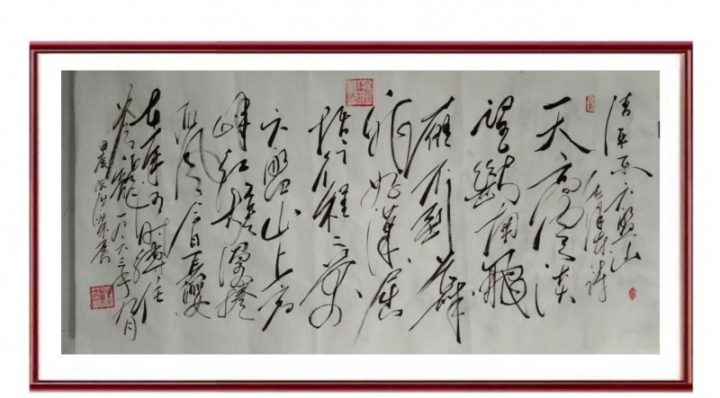 清平乐六盘山
毛泽东
天高云淡
望断南飞
雁不到长城
非好汉屈
指行程二万
六盘山上高
峰红旗漫卷
西风今日长缨
在手何时缚住
苍龙一九六三年
甲辰